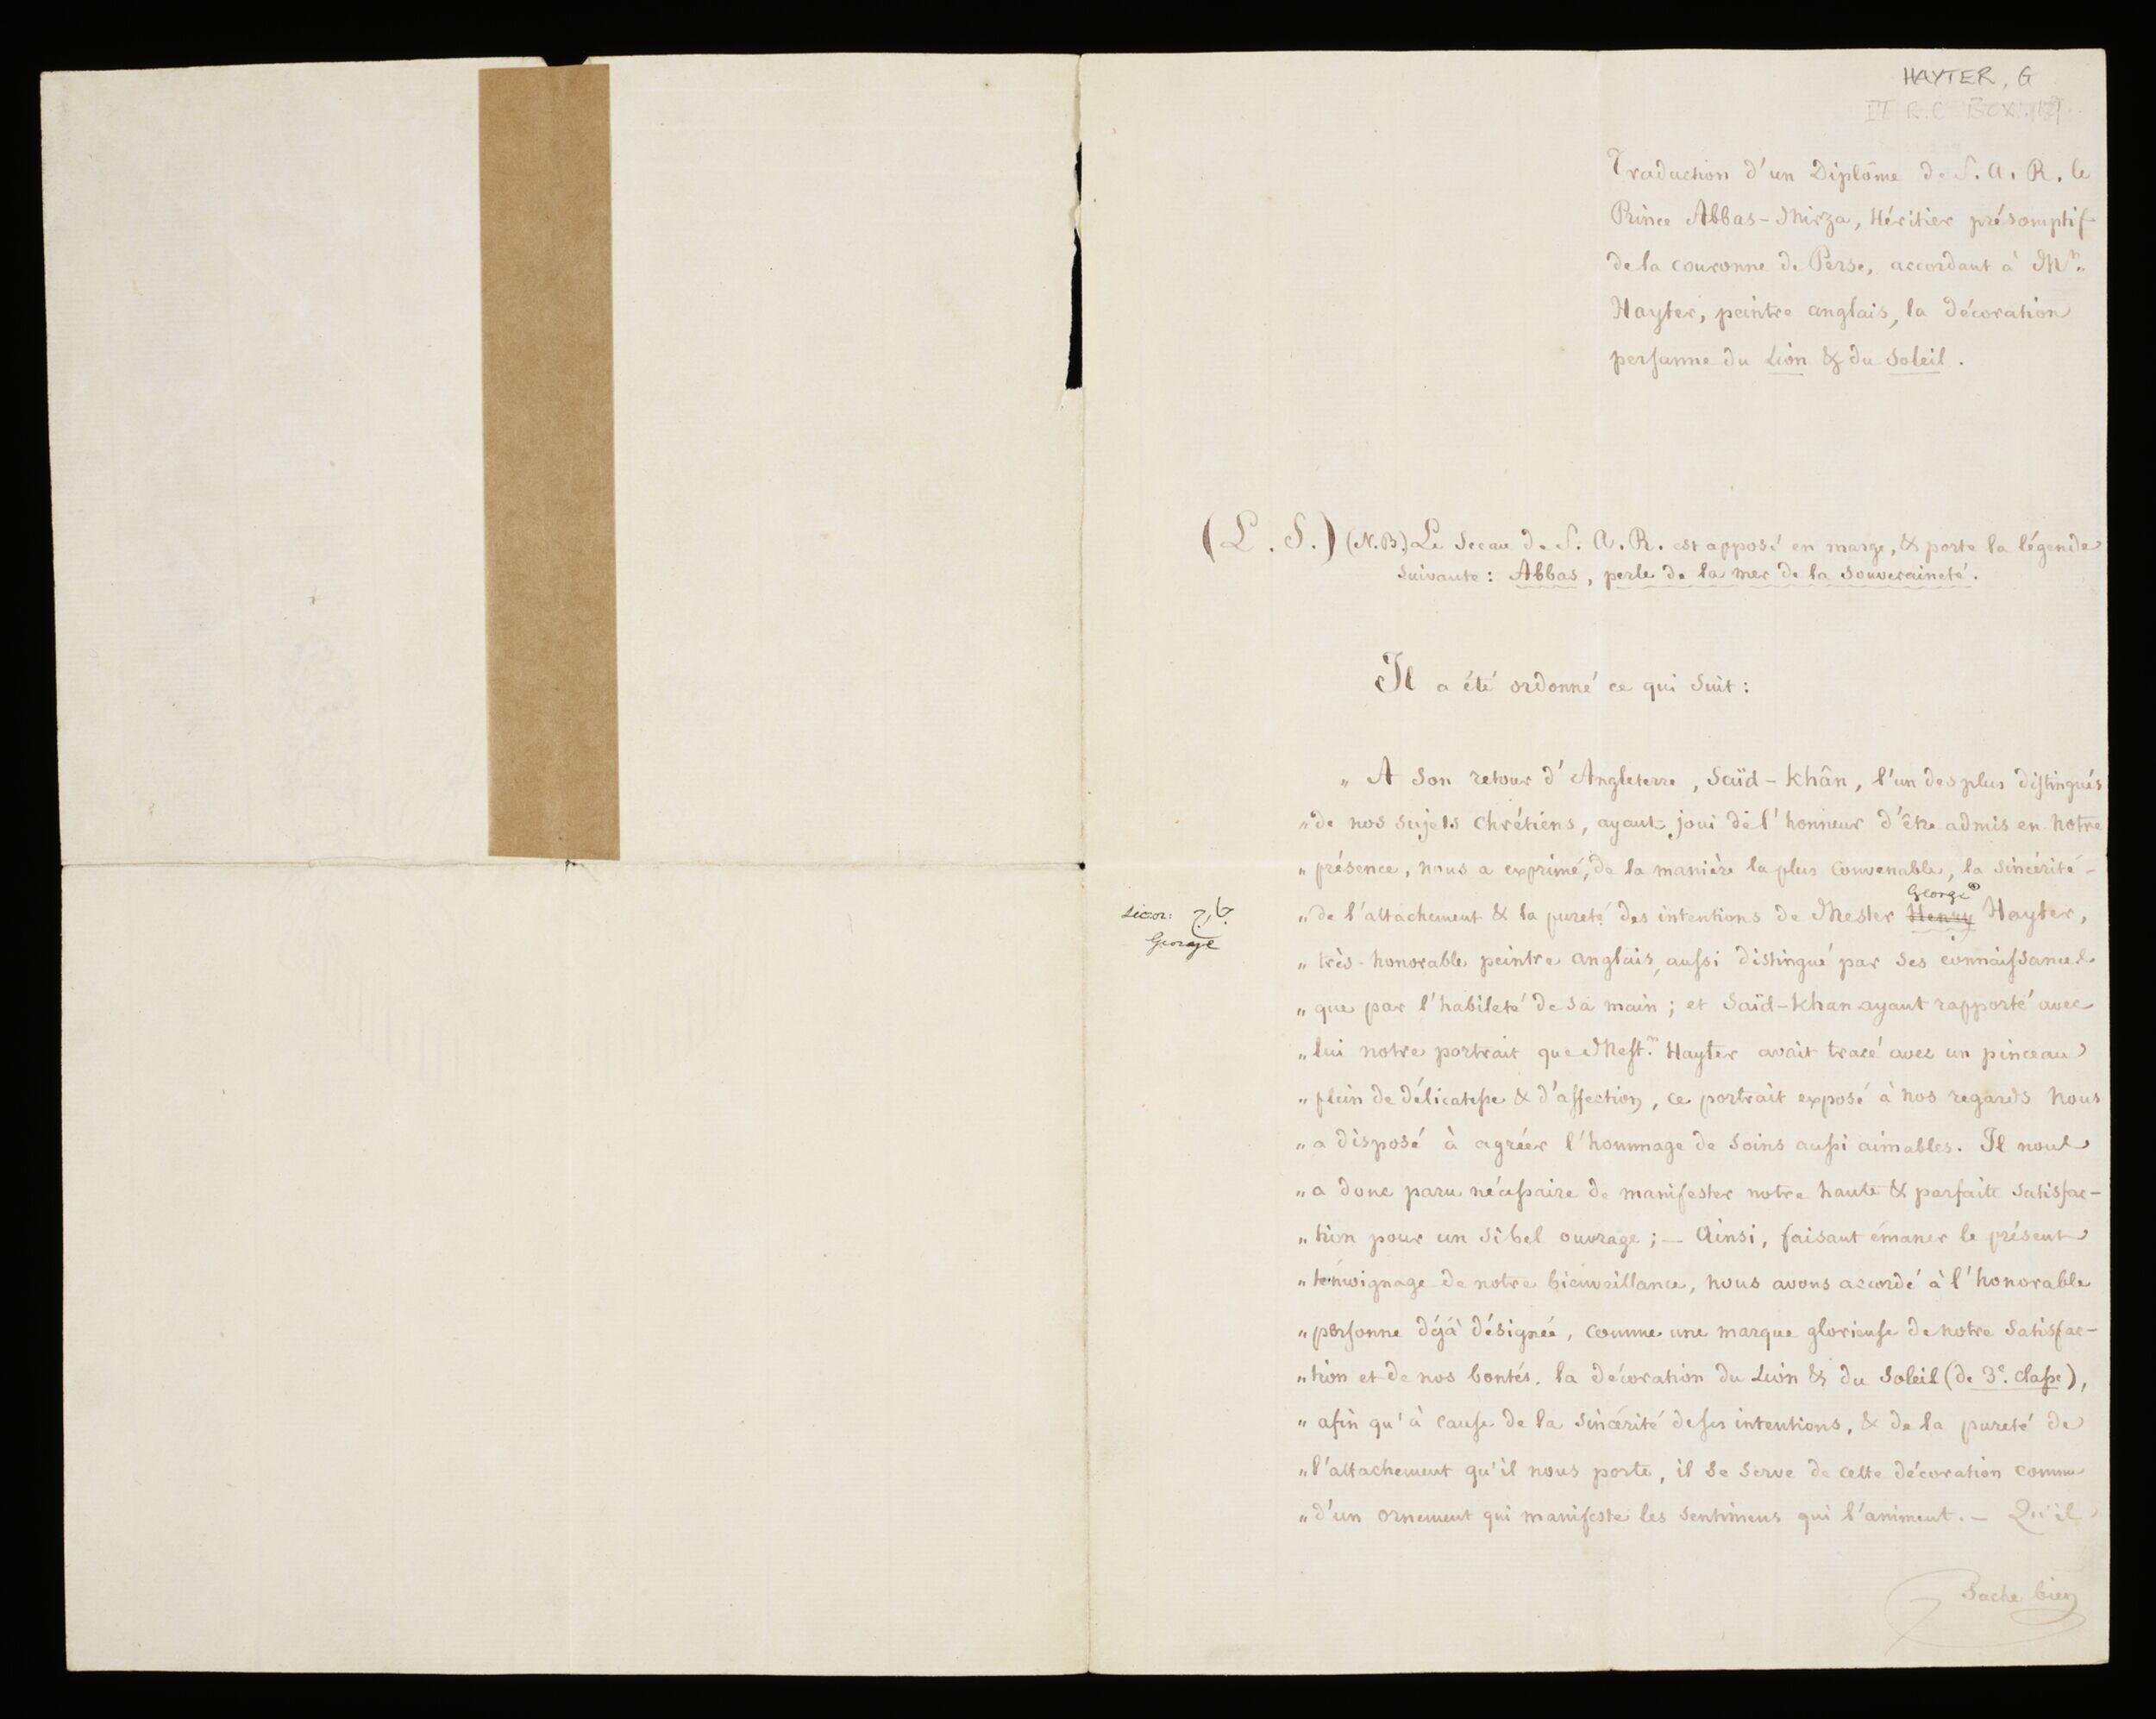 HAYTER, G
Traduction d'un Diplôme de S. A. R. le
Prince Abbas-Mirza, Héritier présomptif
de la couronne de Perse, accordant à Mr.
Hayter, peintre anglais, la décoration
persanne du Lion & du Soleil.
(L. S.) (N.B.) Le Sceau de S. A. R. est apposé en marge, & porte la légende
suivante: Abbas, perle de la mer de la souveraineté.
Il a été ordonné ce qui suit:
„ A son retour d'Angleterre, Saïd-Khân, l'un des plus distingués
„ de nos sujets Chrétiens, ayant joui de l'honneur d'être admis en notre
„ présence, nous a exprimé, de la manière la plus convenable, la sincérité
George
„ de l'attachement & la pureté des intentions de Mester Henry Hayter,
George
„ très-honorable peintre anglais, aussi distingué par ses connaissances
„ que par l'habileté de sa main; et Saïd-Khan ayant rapporté avec
„ lui notre portrait que Mestr. Hayter avait tracé avec un pinceau
„ plein de délicatesse & d'affection, ce portrait exposé à nos regards nous
„ a disposé à agréer l'hommage de soins aussi aimables. Il nous
„ a donc paru nécessaire de manifester notre haute & parfaite satisfac-
„ tion pour un si bel ouvrage; — Ainsi, faisant émaner le présent
„ témoignage de notre bienveillance, nous avons accordé à l'honorable
„ personne déjà désignée, comme une marque glorieuse de notre satisfac-
„ tion et de nos bontés, la décoration du Lion & du Soleil (de 3e. classe),
„ afin qu'à cause de la sincérité de ses intentions, & de la pureté de
„ l'attachement qu'il nous porte, il se serve de cette décoration comme
„ d'un ornement qui manifeste les sentimens qui l'animent. — Qu'il
Sache bien